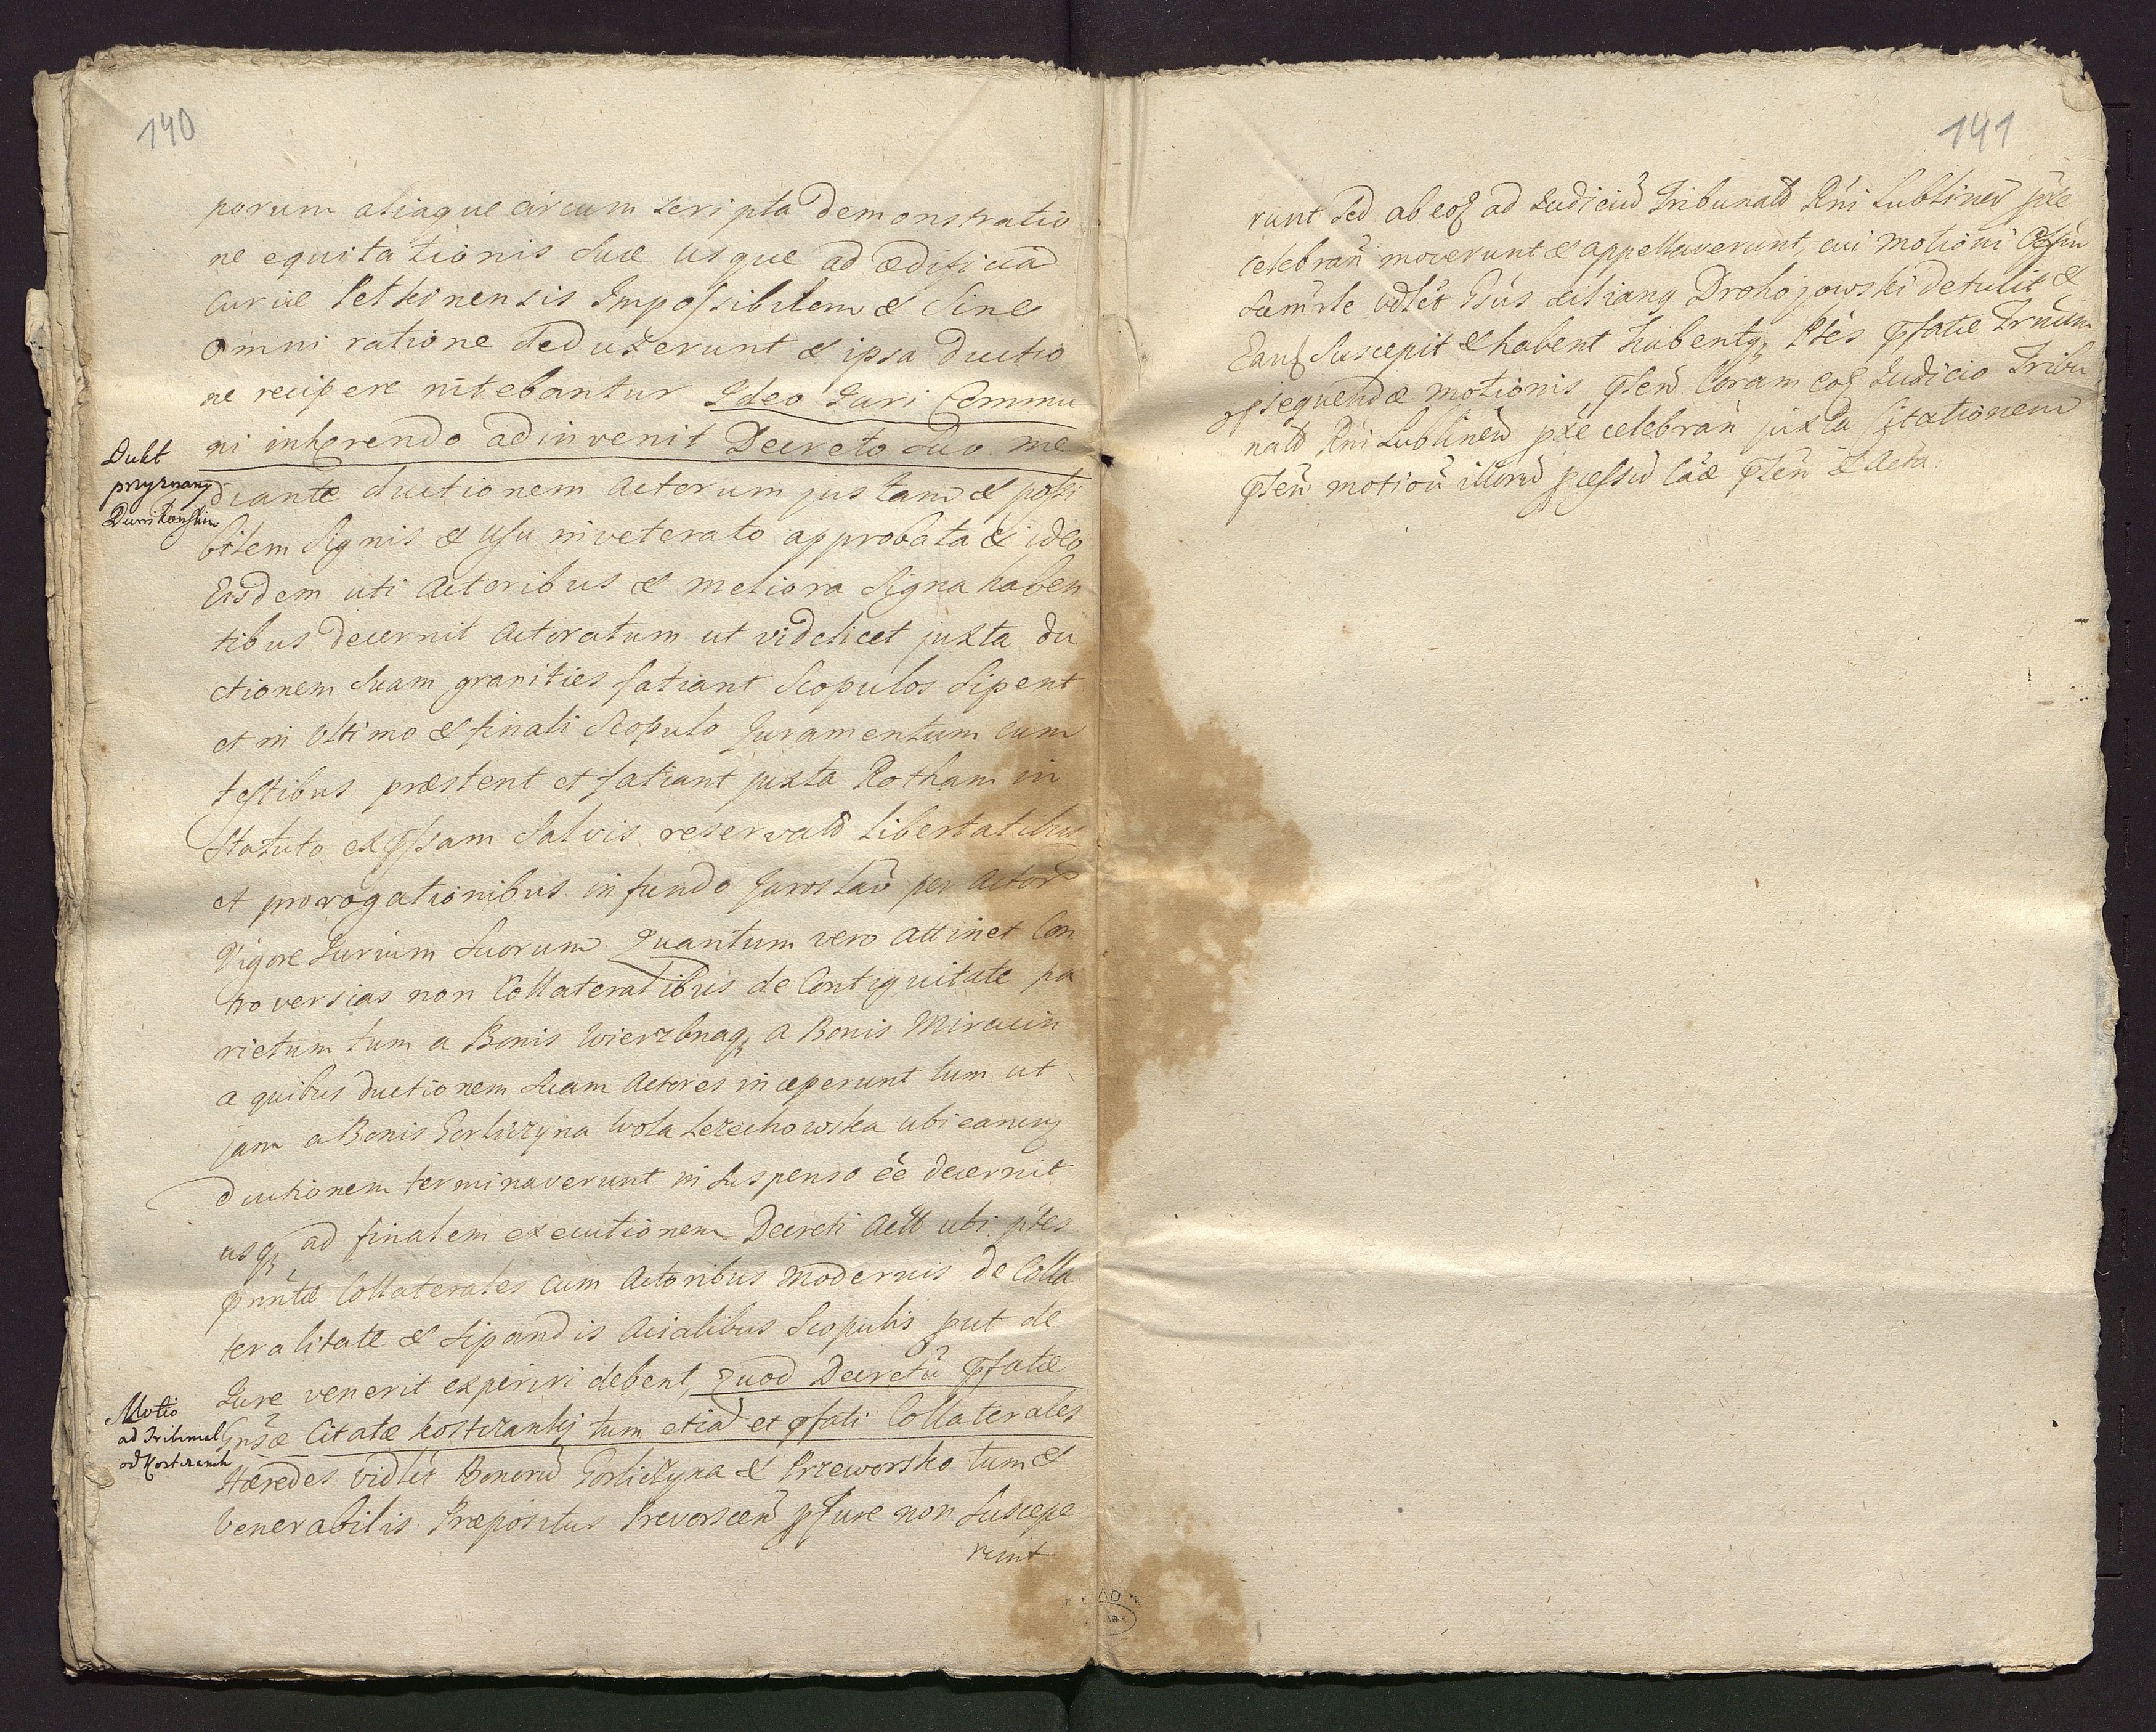 140
porum aliaque circum scripta demonstratio
ne equitationis suæ usque ad ædificia
curiæ Petkinensis Impossibilem & sine
omni ratione deduxerunt & ipsa ductio
ne recipere nitebantur Ideo Juri Commu
ni inhærendo adinvenit Decreto suo me
Dukt
przyznany
diante ductionem Actorum justam & possi
bilem signis & usu inveterato approbata & ideo
Eisdem uti Actoribus & meliora signa haben
tibus decernit Actoratum ut videlicet juxta du
ctionem suam granities fatiant Scopulos sipent
et in ultimo & finali Scopulo Juramentum cum
testibus præstent et fatiant juxta Rotham in
Statuto salvis reservatis libertatibus
et prorogationibus in fundo Jaroslav per Actor
Vigore Jurium suorum Quantum vero attinet Con
troversias non Collateralibus de Contiguitate pa
rietum tum a Bonis Wierzbna a Bonis Miracin
a quibus ductionem suam Actores inceperunt tum ut
jam a Bonis Gorliczyna Wola Rzechowska ubi eamq
ductionem terminaverunt in suspenso ee decernit
usq ad finalem executionem Decreti ubi ptes
Collaterales cum Actoribus modernis de Colla
teralitate & sipandis Acialibus Scopulis put de
Jure venerit experiri debent, Quod Decretu pfatæ
Motio
ad Tribunal
Citatæ Kostczanki tum etia et pfati Collaterales
Hæredes vidlet Bonoru Gorliczyna & Przeworsko tum &
Venerabilis Præpositus non suscepe
runt
141
runt sed ab eo ad Judiciu Tribunals Rni Lublinen pxe
celebran moverunt & appellaverunt, cui motioni
Drohojowski detulit &
suscepit & habent Ptes pfatæ Trnum
psequendæ motionis pten Coram eo Judicio Tribu
nals Rni Lublinen pxe celebran juxta Citationem
pten motion illoru